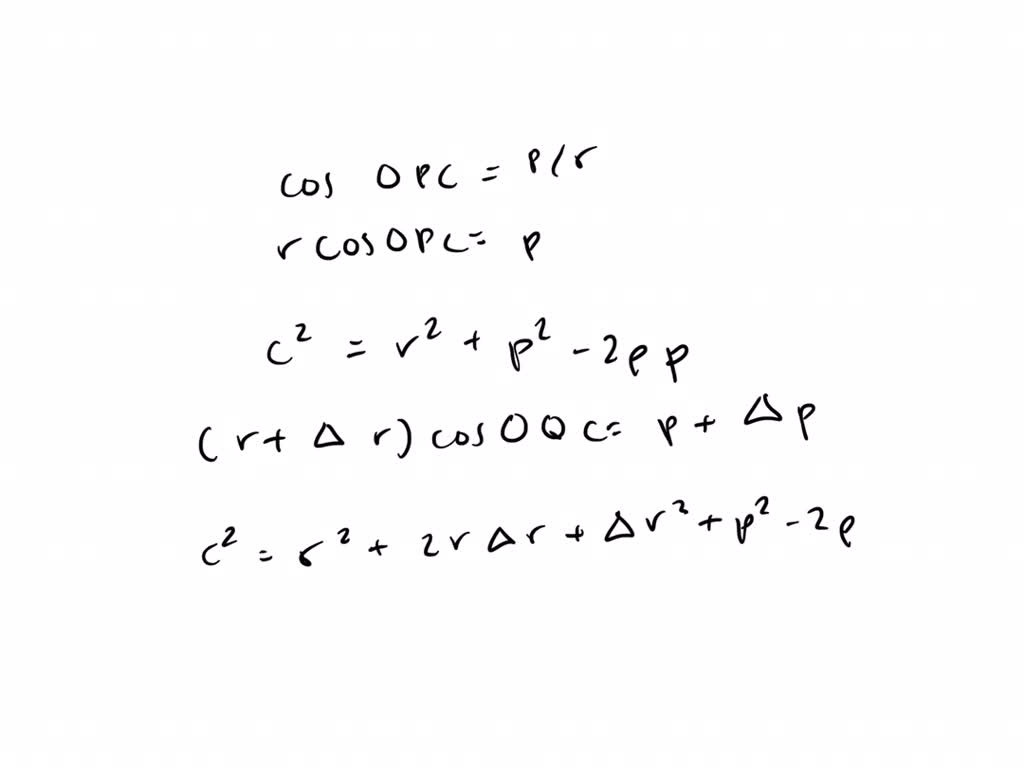 cos OPC = p/r
r cos OPC = p
c² = r² + p² - 2ρp
(r + Δr) cos OQC = p + Δp
c² = r² + 2rΔr + Δr² + p² - 2ρ